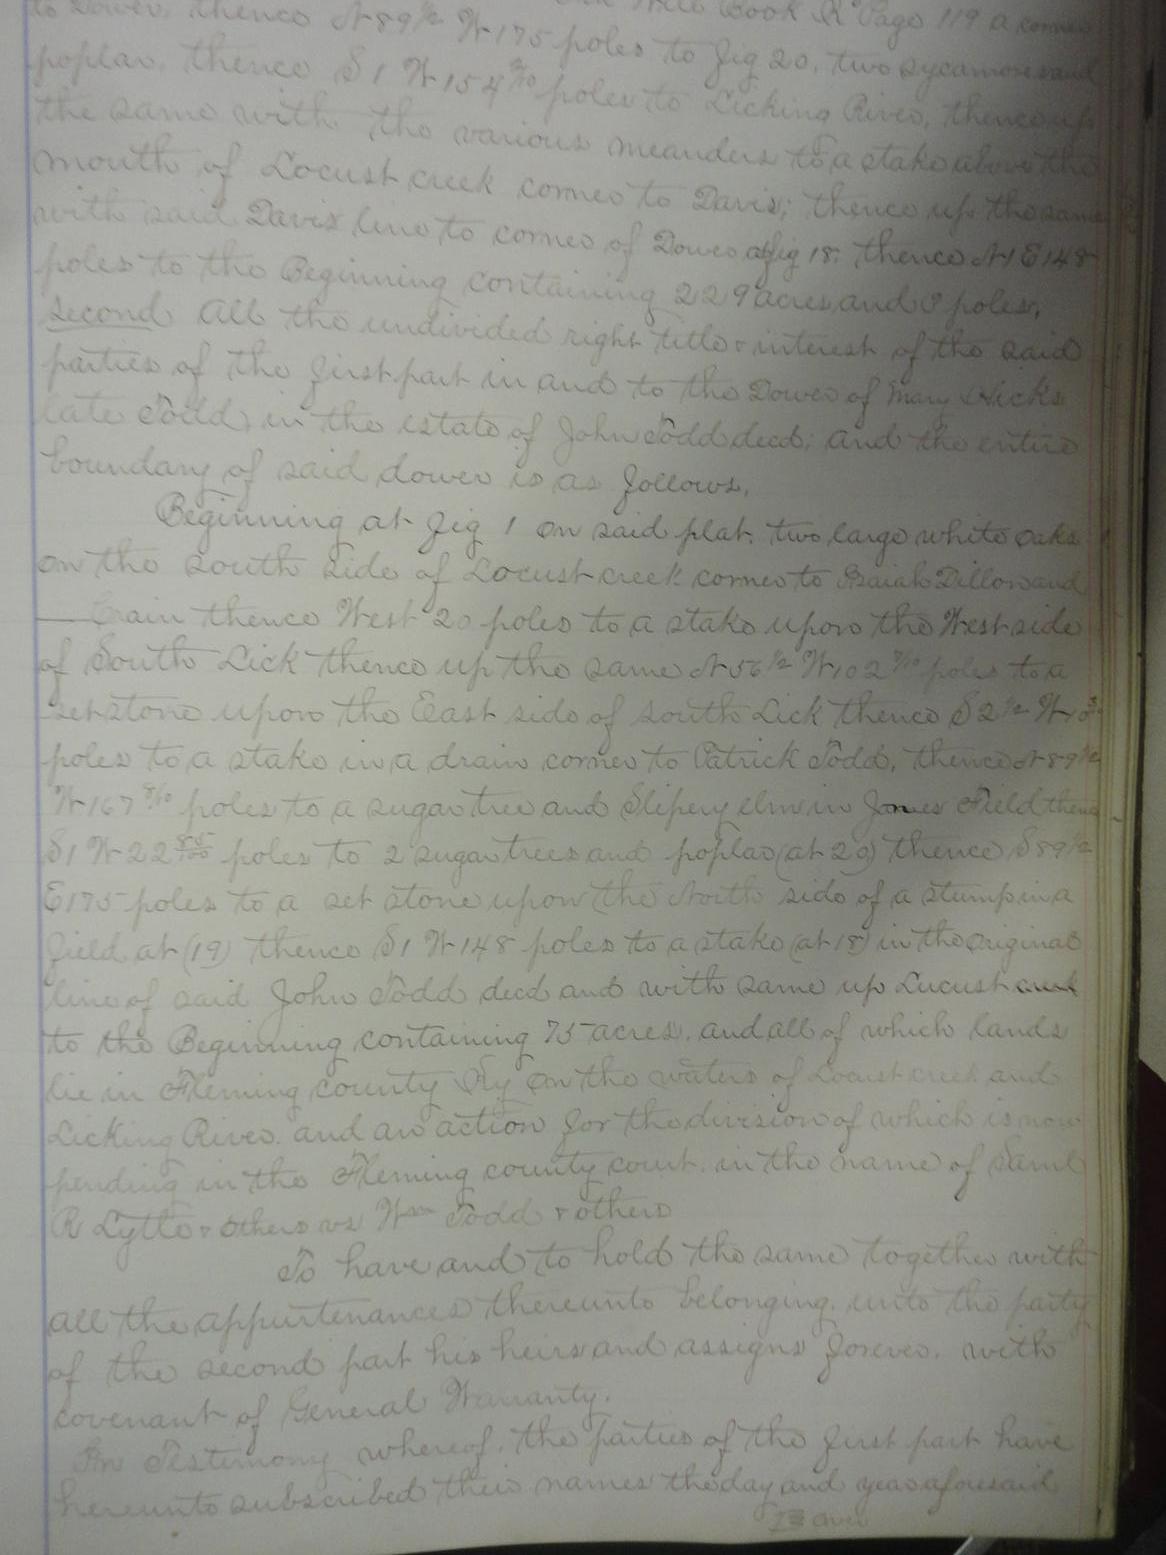 to Dower, thence N 89 1/2 W 175 poles to fig 20, two sycamores and
poplar, thence S 1 W 154 9/10 poles to Licking River, thence up
the same with the various meanders to a stake above the
mouth of Locust creek corner to Davis; thence up the same
with said Davis line to corner of Dower at fig 18; thence N 1 E 148
poles to the Beginning containing 229 acres and 8 poles,
second All the undivided right title & interest of the said
parties of the first part in and to the Dower of Mary Hicks
late Todd, in the estate of John Todd decd; and the entire
boundary of said dower is as follows,
Beginning at fig 1 on said plat, two large white oaks
on the south side of Locust creek corner to Isaiah Dillon and
Crain thence West 20 poles to a stake upon the West side
of South Lick thence up the same N 56 1/2 W 102 7/10 poles to a
set stone upon the East side of South Lick thence S 2 1/2 W
poles to a stake in a drain corner to Patrick Todd, thence N 89 1/2
W 167 8/10 poles to a sugar tree and Slipery elm in Jones Field thence
S 1 W 22 85/100 poles to 2 sugar trees and poplar (at 20) thence S 89 1/2
E 175 poles to a set stone upon the North side of a stump in a
field at (19) thence S 1 W 148 poles to a stake (at 18) in the original
line of said John Todd decd and with same up Lucust creek
to the Beginning containing 75 acres, and all of which lands
lie in Fleming county Ky on the waters of Locust creek and
Licking River. and an action for the division of which is now
pending in the Fleming county court, in the name of Saml
R Lytle & others vs Wm Todd & others
To have and to hold the same together with
all the appurtenances thereunto belonging, unto the party
of the second part his heirs and assigns forever. with
covenant of General Warranty.
In Testimony whereof, the parties of the first part have
hereunto subscribed their names the day and year aforesaid
over